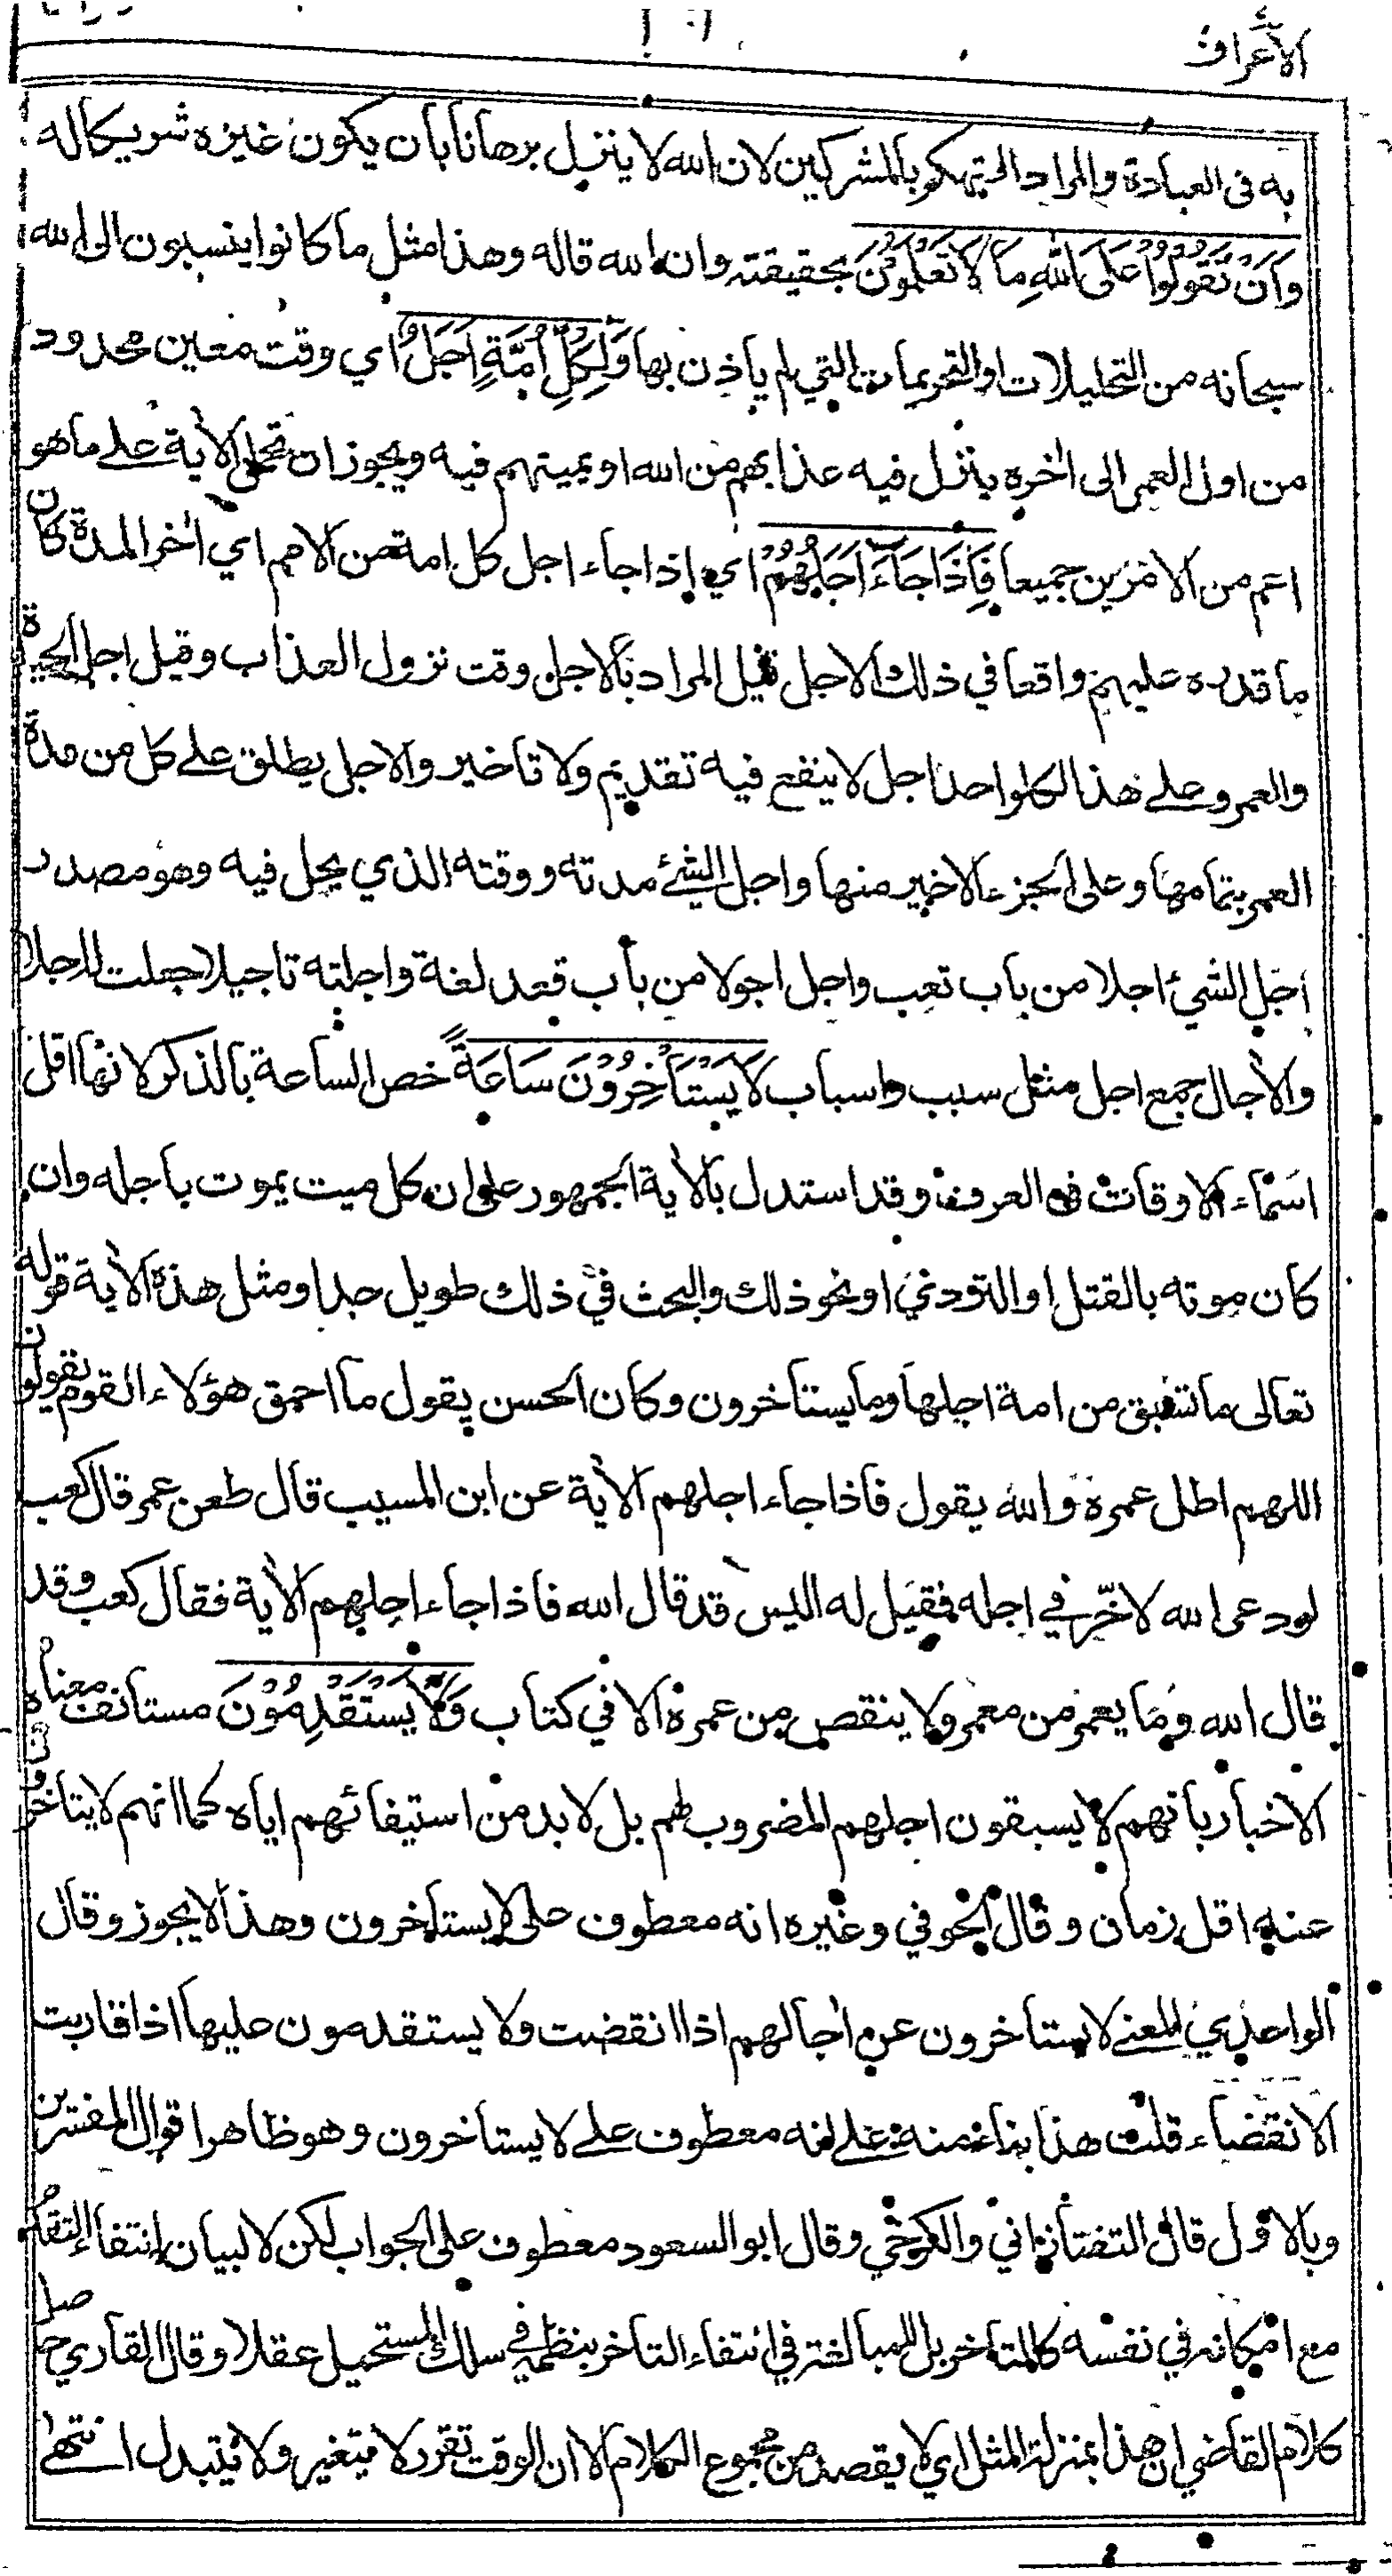 الأعراف
به فى العبادة والمراد التهكم بالمشركين لان الله لا ينزل برهانا بان يكون غيره شريكا له
وَأَنْ تَقُولُوا عَلَى اللَّهِ مَا لَا تَعْلَمُونَ بحقيقته وان الله قاله وهذا مثل ما كانوا ينسبون الى الله
سبحانه من التحليلات او التحريمات التي لم ياذن بها وَلِكُلِّ أُمَّةٍ أَجَلٌ اي وقت معين محدود
من اول العمر الى اخره ينزل فيه عذابهم من الله او يميتهم فيه ويجوز ان تحمل الآية على ما هو
اعم من الامرين جميعا فَإِذَا جَاءَ أَجَلُهُمْ اي اذا جاء اجل كل امة من الامم اي اخر المدة كان
ما قدره عليهم واقعا في ذلك الاجل قيل المراد بالاجل وقت نزول العذاب وقيل اجل الحيوة
والعمر وعلى هذا لكل واحد اجل لا ينفع فيه تقديم ولا تاخير والاجل يطلق على كل من مدة
العمر بتمامها وعلى الجزء الاخير منها واجل الشيء مدته ووقته الذي يحل فيه وهو مصدر
اجل الشيء اجلا من باب تعب واجل اجولا من باب قعد لغة واجلته تاجيلا جعلت له اجلا
والآجال جمع اجل مثل سبب واسباب لَا يَسْتَأْخِرُونَ سَاعَةً خص الساعة بالذكر لانها اقل
اسماء الاوقات فى العرف وقد استدل بالآية الجمهور على ان كل ميت يموت باجله وان
كان موته بالقتل او التردي او نحو ذلك والبحث في ذلك طويل جدا ومثل هذه الآية قوله
تعالى ما تسبق من امة اجلها وما يستاخرون وكان الحسن يقول ما احمق هؤلاء القوم يقولون
اللهم اطل عمره والله يقول فاذا جاء اجلهم الآية عن ابن المسيب قال طعن عمر قال كعب
لو دعى الله لاخّر في اجله فقيل له اليس قد قال الله فاذا جاء اجلهم الآية فقال كعب وقد
قال الله وما يعمر من معمر ولا ينقص من عمره الا في كتاب وَلَا يَسْتَقْدِمُونَ مستانف معناه
الاخبار بانهم لا يسبقون اجلهم المضروب لهم بل لابد من استيفائهم اياه كما انهم لا يتاخرون
عنه اقل زمان وقال الحوفي وغيره انه معطوف على لا يستاخرون وهذا لا يجوز وقال
الواحدي المعنى لا يستاخرون عن آجالهم اذا انقضت ولا يستقدمون عليها اذا قاربت
الانقضاء قلت هذا بناء منه على انه معطوف على لا يستاخرون وهو ظاهر اقوال المفسرين
وبالاول قال التفتازاني والكرخي وقال ابو السعود معطوف على الجواب لكن لا لبيان انتفاء التقدم
مع امكانه في نفسه كالمتاخر بل للمبالغة في انتفاء التاخر بنظمه في سلك المستحيل عقلا وقال القاري حاصل
كلام القاضي ان هذا بمنزلة المثل اي لا يقصد من مجموع الكلام الا ان الوقت تقرر لا يتغير ولا يتبدل انتهى